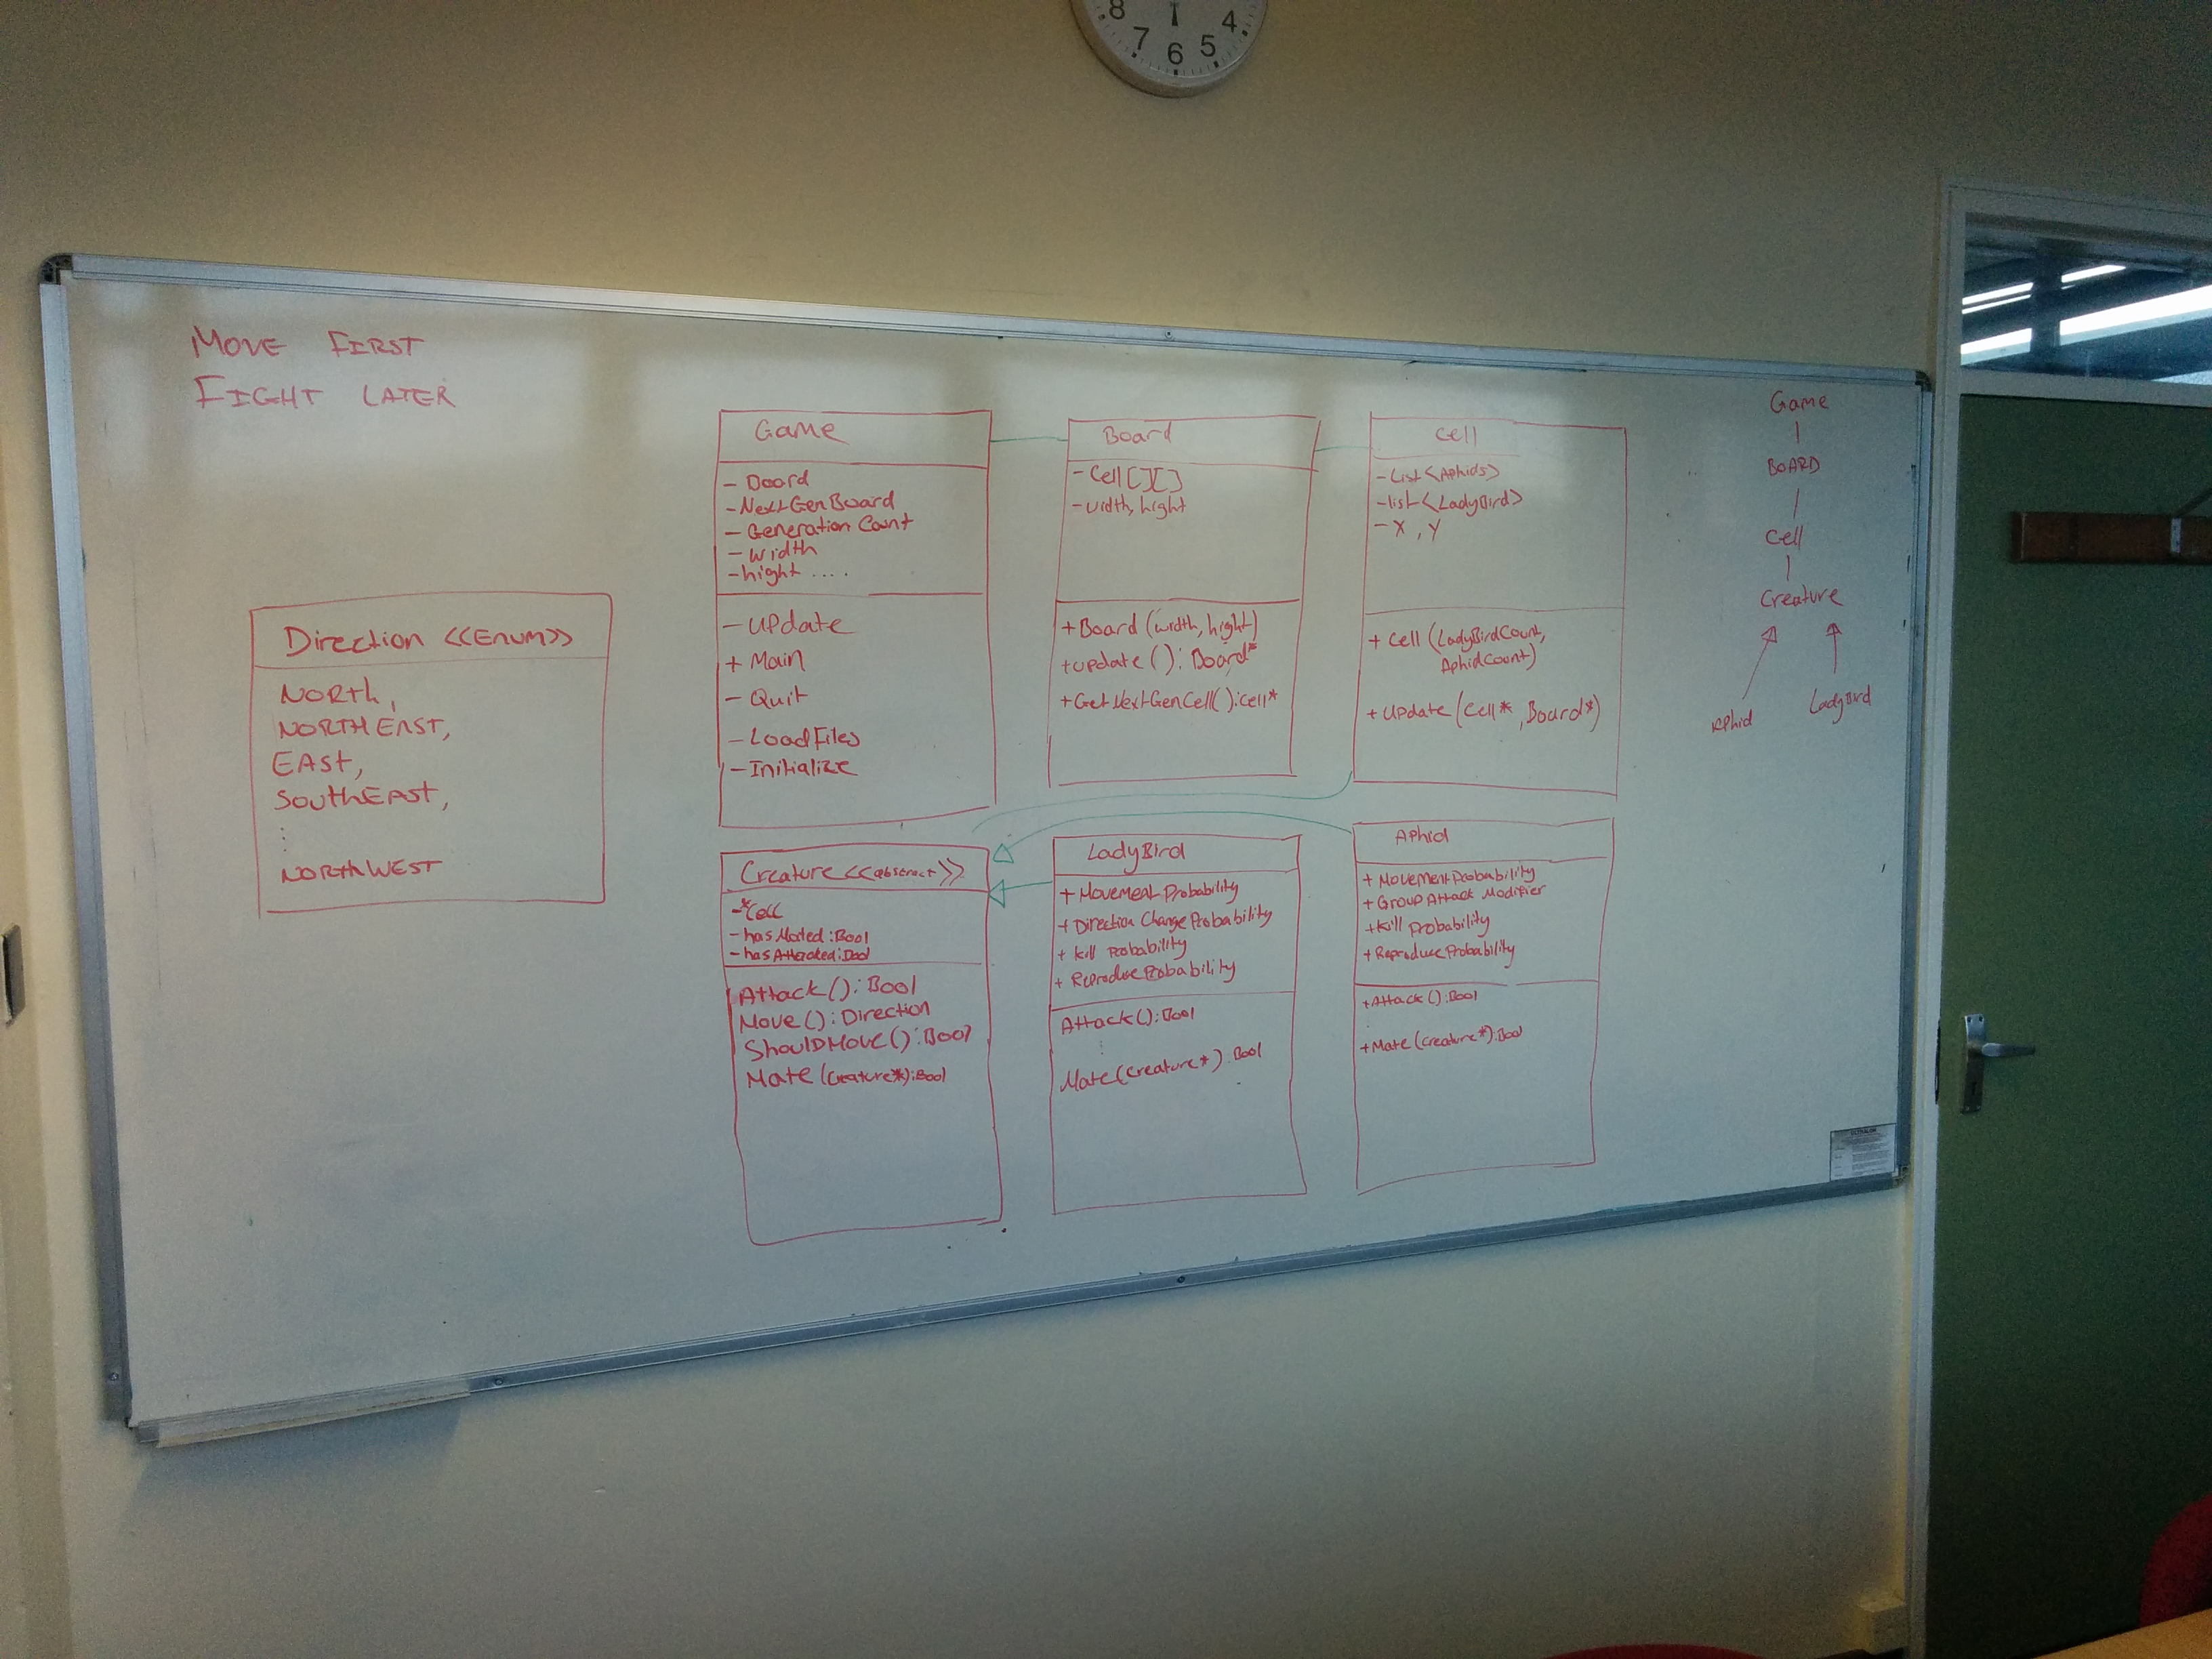 8 7 6 5 4
MOVE FIRST
FIGHT LATER
Direction <<Enum>>
NORTH,
NORTHEAST,
EAST,
SOUTHEAST,
⋮
NORTHWEST
Game
- Board
- NextGenBoard
- Generation Count
- Width
- hight ....
- Update
+ Main
- Quit
- LoadFiles
- Initialize
Board
- Cell[][]
- width, hight
+ Board (width, hight)
+ update (): Board*
+ GetNextGenCell(): cell*
Cell
- List<Aphids>
- list<LadyBird>
- X, Y
+ Cell (LadyBirdCount,
AphidCount)
+ Update (Cell*, Board*)
Creature <<abstract>>
- *Cell
- hasMated: Bool
- hasAttacked: Bool
Attack(): Bool
Move(): Direction
ShouldMove(): Bool
Mate (Creature*): Bool
LadyBird
+ Movement Probability
+ Direction Change Probability
+ Kill Probability
+ Reproduce Probability
Attack(): Bool
⋮
Mate(Creature*): Bool
Aphid
+ Movement Probability
+ Group Attack Modifier
+ Kill Probability
+ Reproduce Probability
+ Attack(): Bool
⋮
+ Mate (Creature*): Bool
Game
BOARD
Cell
Creature
Aphid
LadyBird